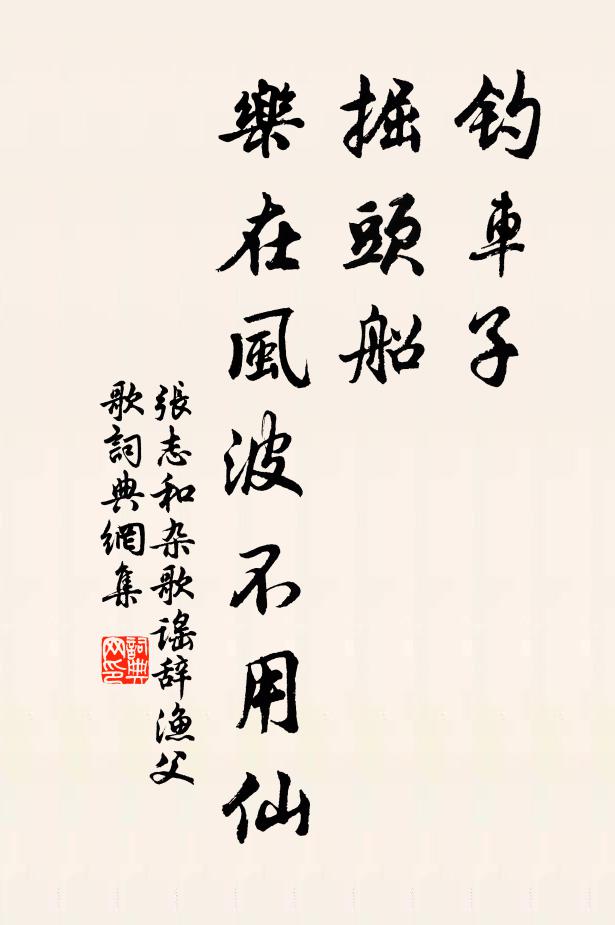 钓車子
掘頭船
樂在風波不用仙
張志和杂歌谣辞漁父
歌詞典網集
詞典
网印